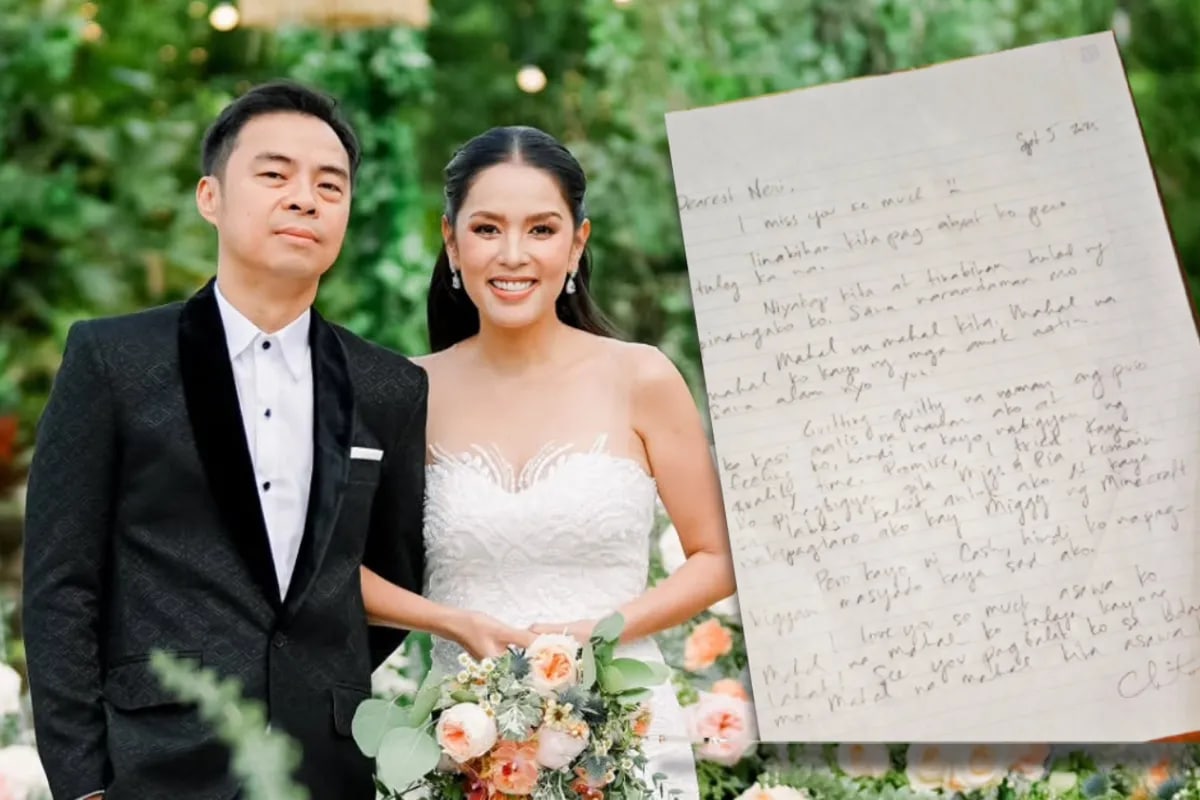 Sept 5 2025
Dearest Neri,
I miss you so much !!
Tinabihan kita pag-akyat ko pero
tulog ka na.
Niyakap kita at tinabihan tulad ng
pinangako ko. Sana naramdaman mo
Mahal na mahal kita. Mahal na
mahal ko kayo ng mga anak natin
Sana alam nyo yun.
Guilting guilty na naman ang puso
ko kasi aalis na naman ako at
feeling ko, hindi ko kayo nabigyan ng
quality time. Promise, I tried. Kaya
ko pinagbigyan sila Migs & Pia kumain
sa labas kahit antok ako at kaya
nakipaglaro ako kay Miggy ng Minecraft
Pero kayo ni Cash, hindi ko napag-
bigyan masyado kaya sad ako.
I love you so much asawa ko
Mahal na mahal ko talaga kayong
lahat. See you pagbalik ko sa
mo. Mahal na mahal kita asawa
Chito